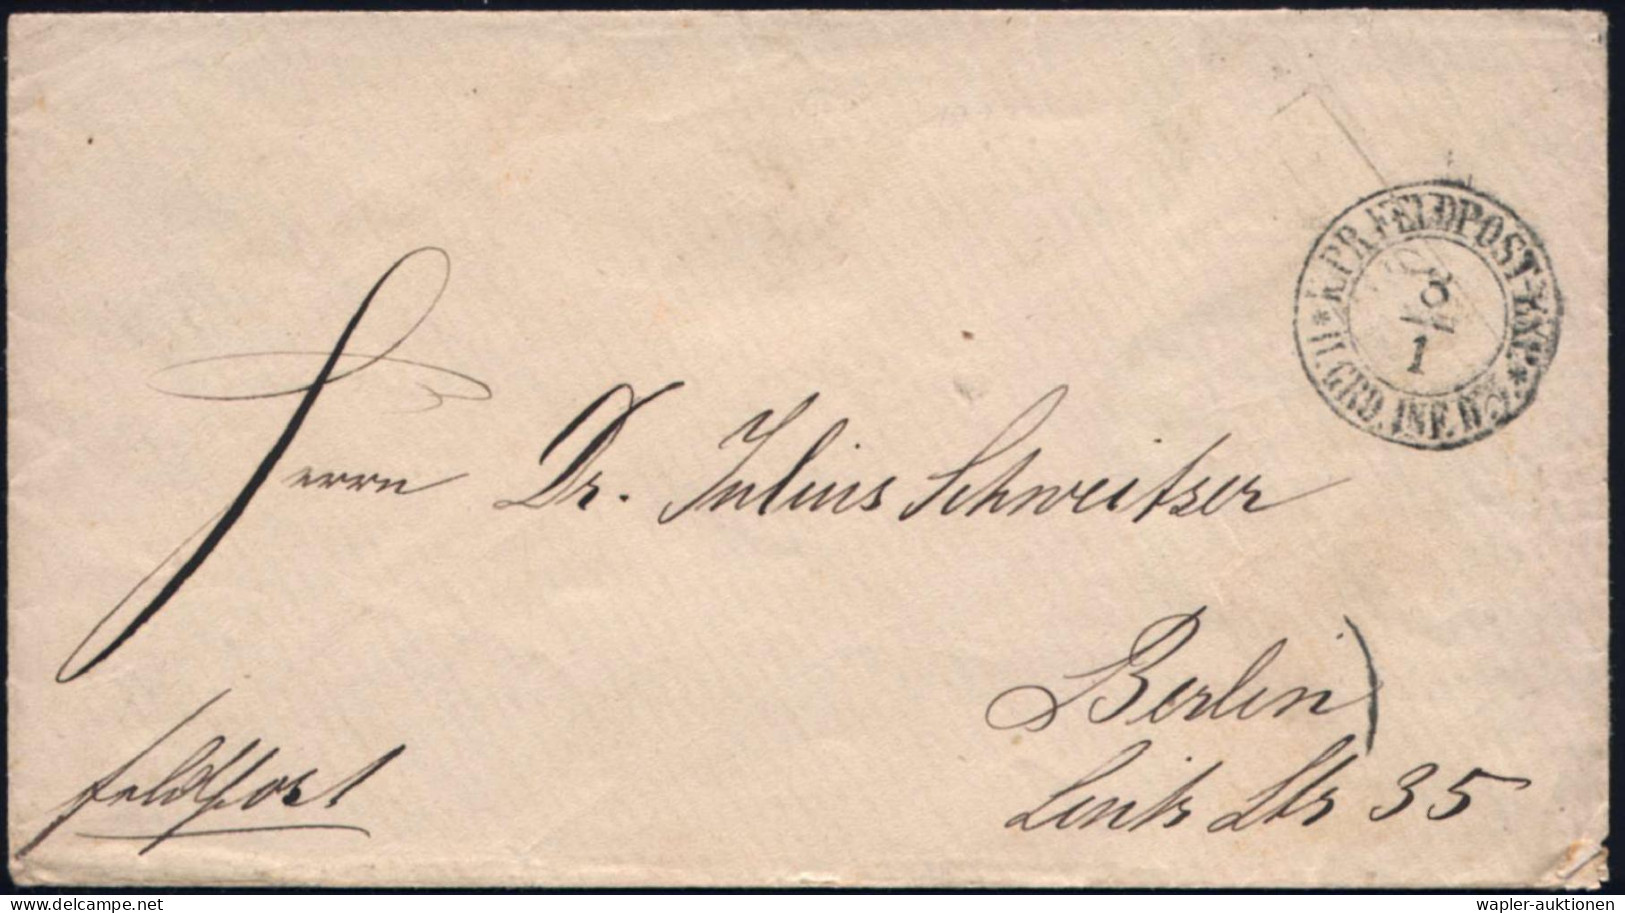 K. PR. FELDPOST-EXP.
II. GRD. INF. DIV.
1
Herrn Dr. Julius Schweitzer
Berlin
Link Str 35
feldpost
delcampe.net
wapler-auktionen